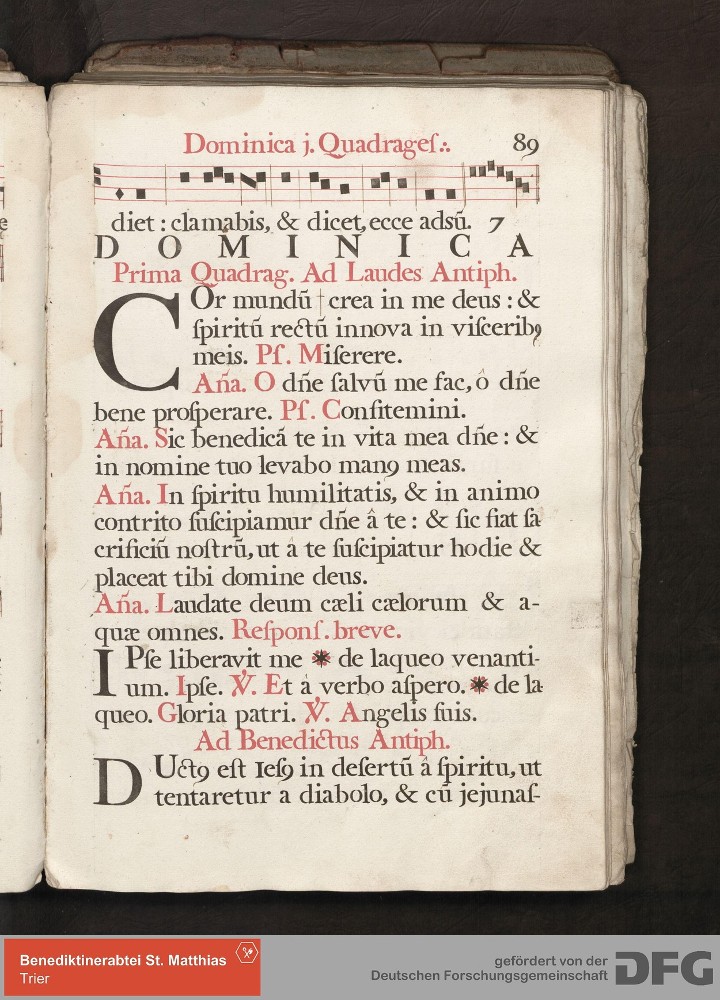 Dominica j. Quadrageſ.:. 89
diet : clamabis, & dicet, ecce adsū. 7
D O M I N I C A
Prima Quadrag. Ad Laudes Antiph.
COr mundū † crea in me deus : &
ſpiritū rectū innova in viſceribꝫ
meis. Pſ. Miſerere.
Añā. O dn̄e ſalvū me fac, ô dn̄e
bene proſperare. Pſ. Confitemini.
Añā. Sic benedicā te in vita mea dn̄e : &
in nomine tuo levabo manꝰ meas.
Añā. In ſpiritu humilitatis, & in animo
contrito ſuſcipiamur dn̄e â te : & ſic fiat ſa
crificiū noſtrū, ut â te ſuſcipiatur hodie &
placeat tibi domine deus.
Añā. Laudate deum cæli cælorum & a-
quæ omnes. Reſponſ. breve.
IPſe liberavit me * de laqueo venanti-
um. Ipſe. ℣. Et â verbo aſpero. * de la
queo. Gloria patri. ℣. Angelis ſuis.
Ad Benedictus Antiph.
DUctꝰ eſt Ieſꝰ in deſertū â ſpiritu, ut
tentaretur a diabolo, & cū jejunaſ-
Benediktinerabtei St. Matthias
Trier
gefördert von der
Deutschen Forschungsgemeinschaft DFG